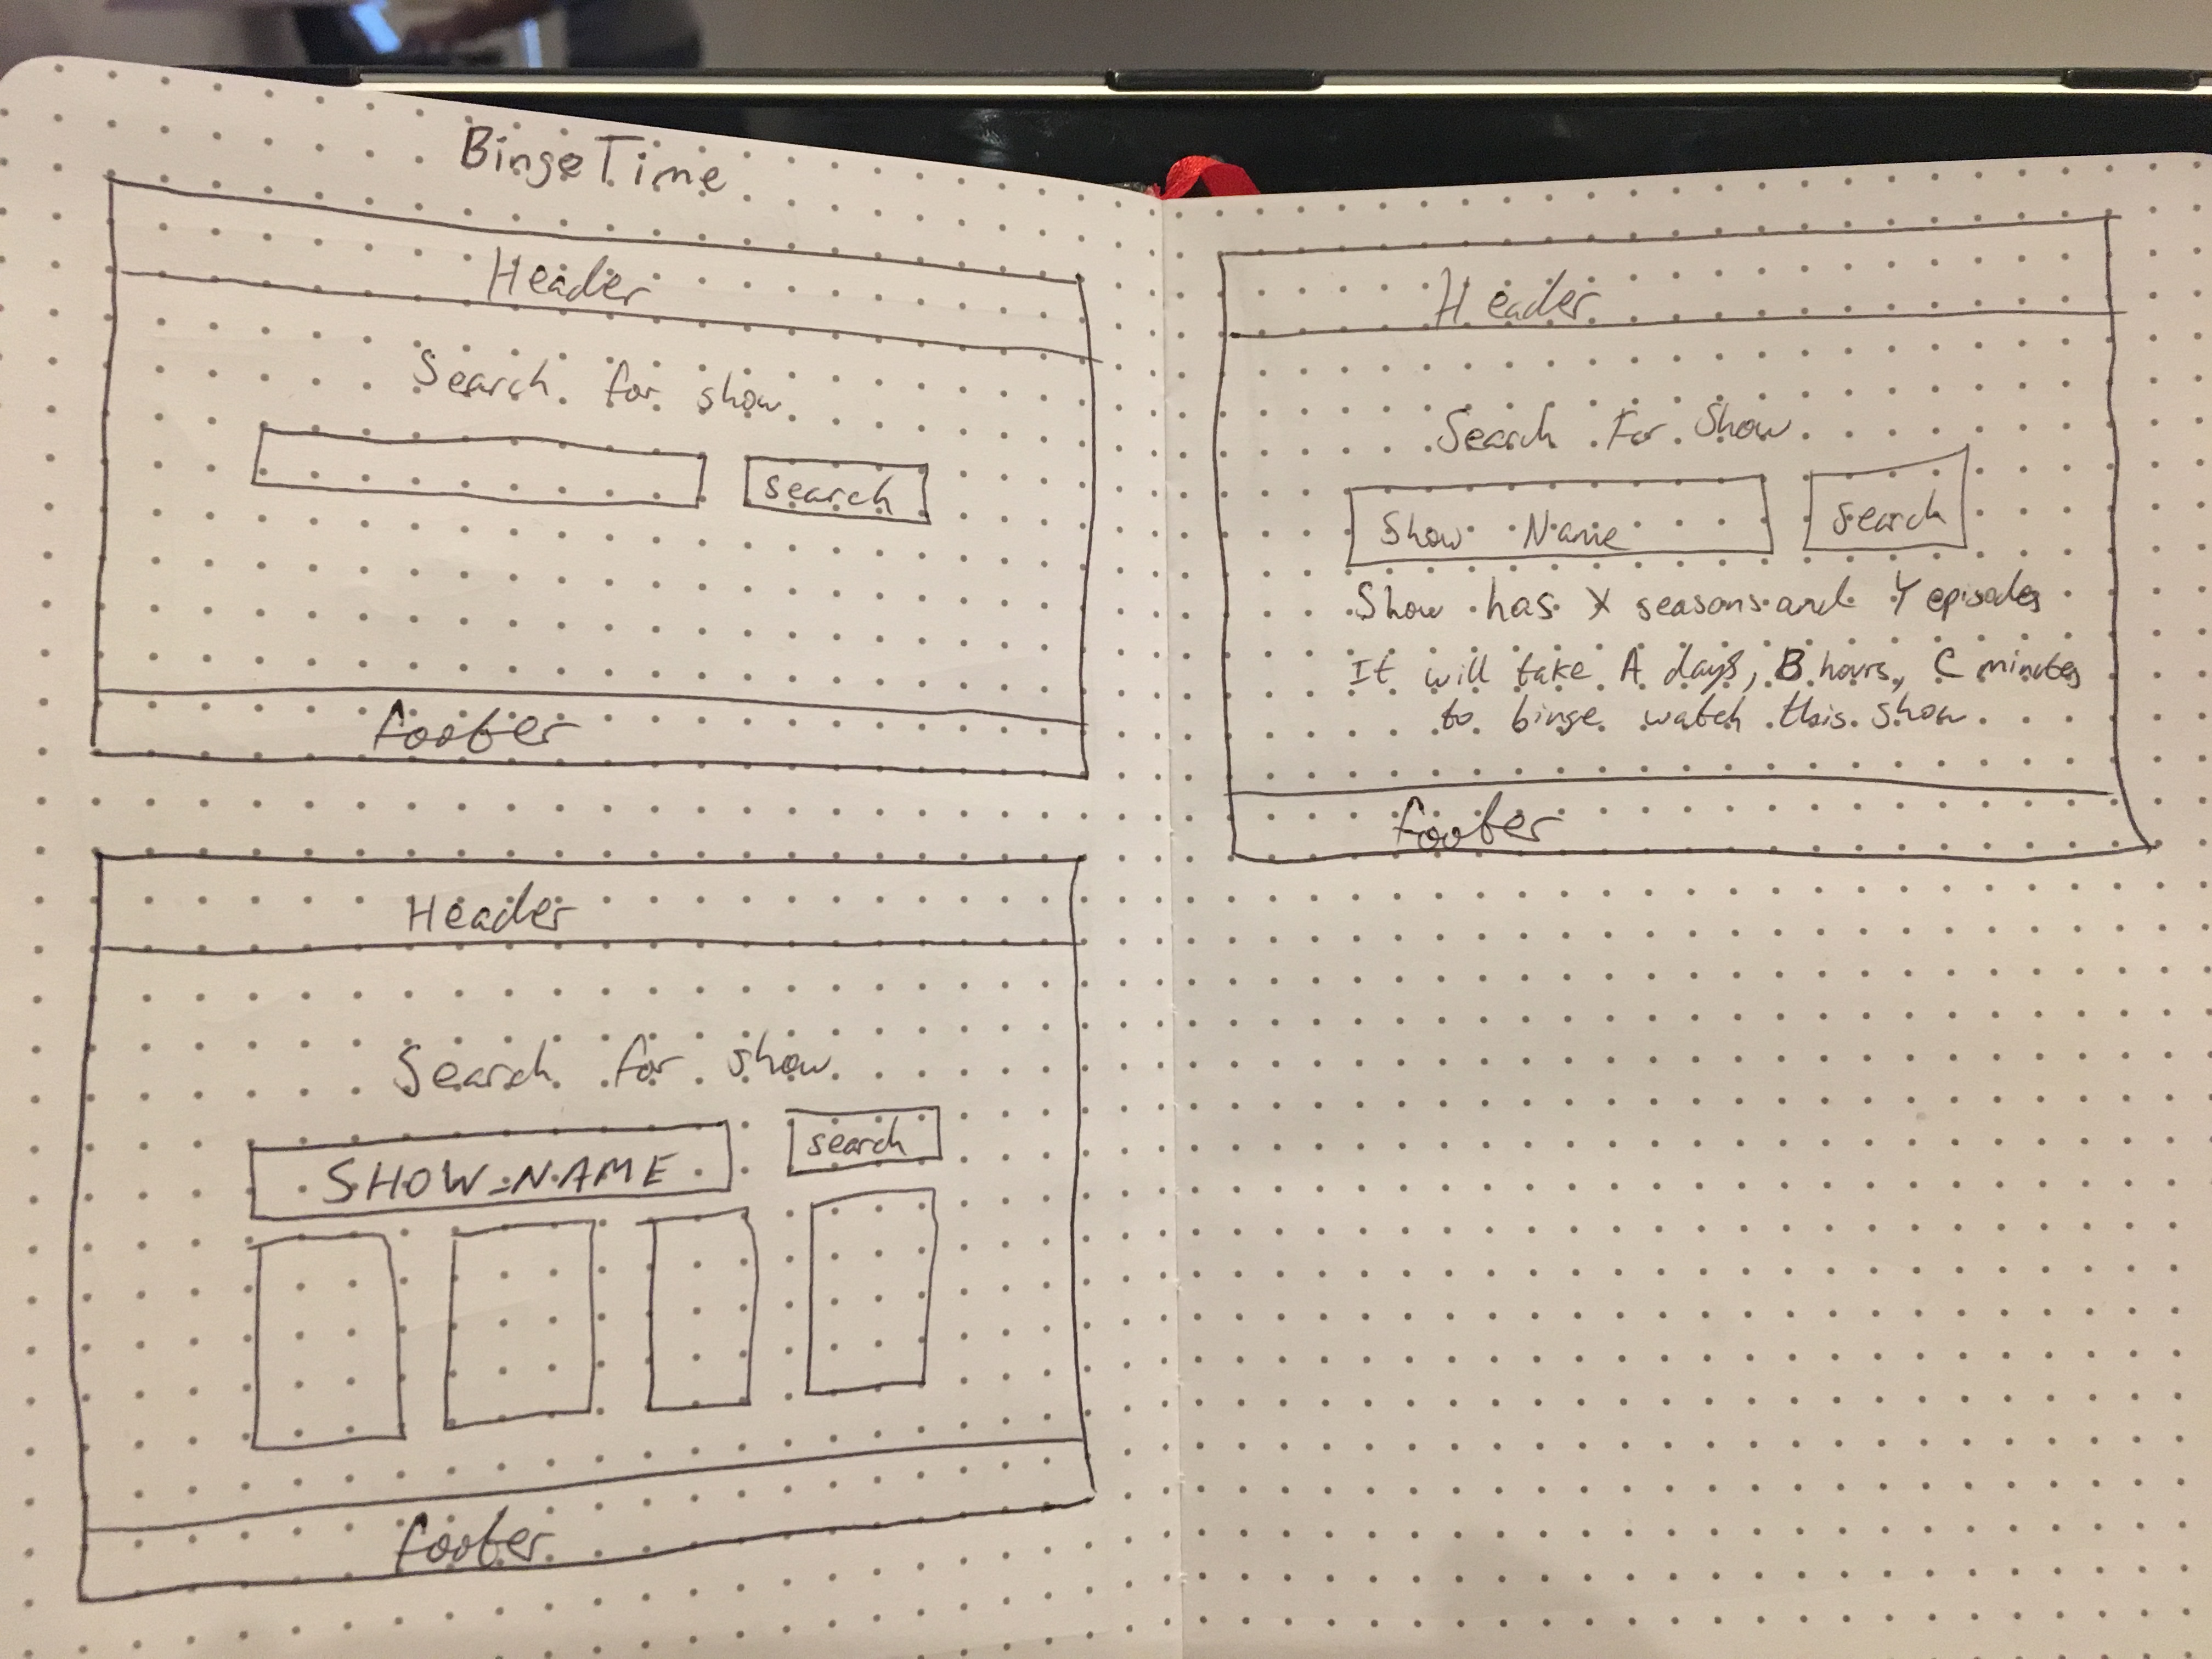 BingeTime
Header
Search for show
search
footer
Header
Search for show
SHOW-NAME
search
footer
Header
Search For Show
Show Name
search
Show has X seasons and Y episodes
It will take A days, B hours, C minutes
to binge watch this show
footer